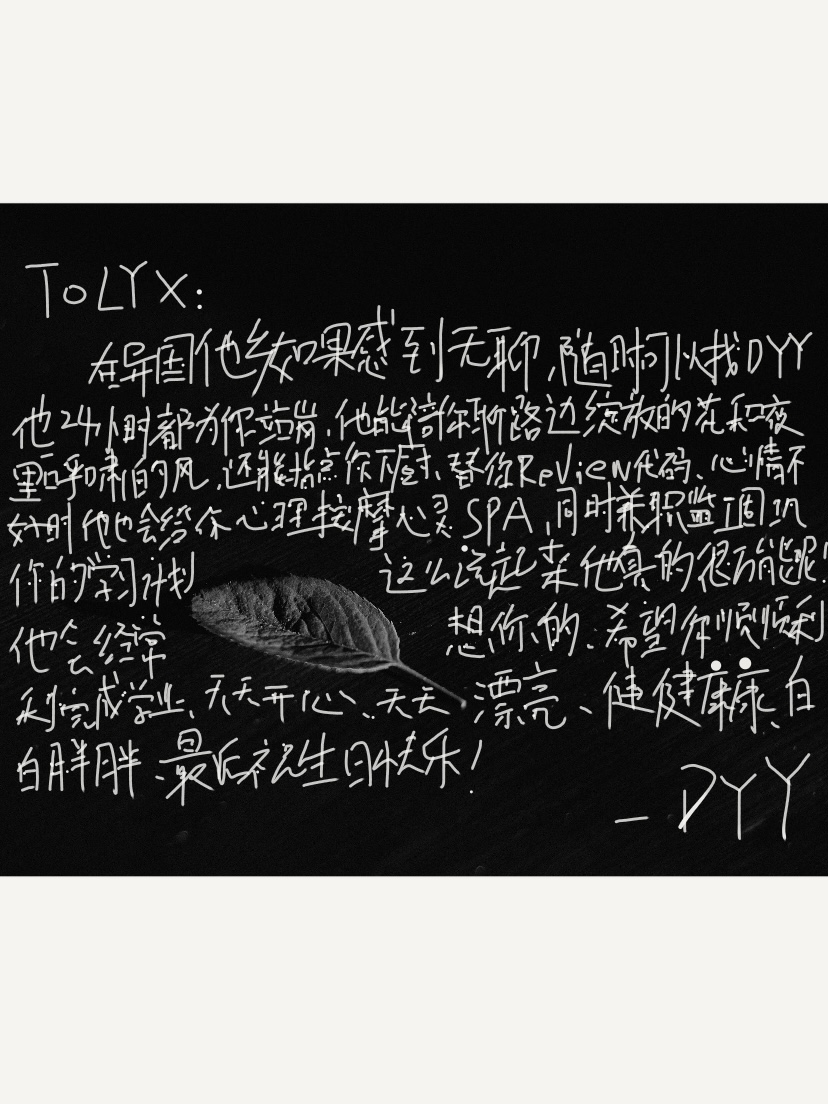 To LYX:
在异国他乡如果感到无聊,随时可以找DYY
他24小时都为你站岗,他能陪你聊路边绽放的花和夜
里呼啸的风,还能指点你下厨、替你Review代码、心情不
好时他也会给你心理按摩心灵SPA,同时兼职监工周巩
你的学习计划 这么说起来他真的很万能呢!
他会经常 想你的.希望你顺顺利
利完成学业、天天开心、天天 漂亮、健健康康、白
白胖胖、最后祝生日快乐!
— DYY